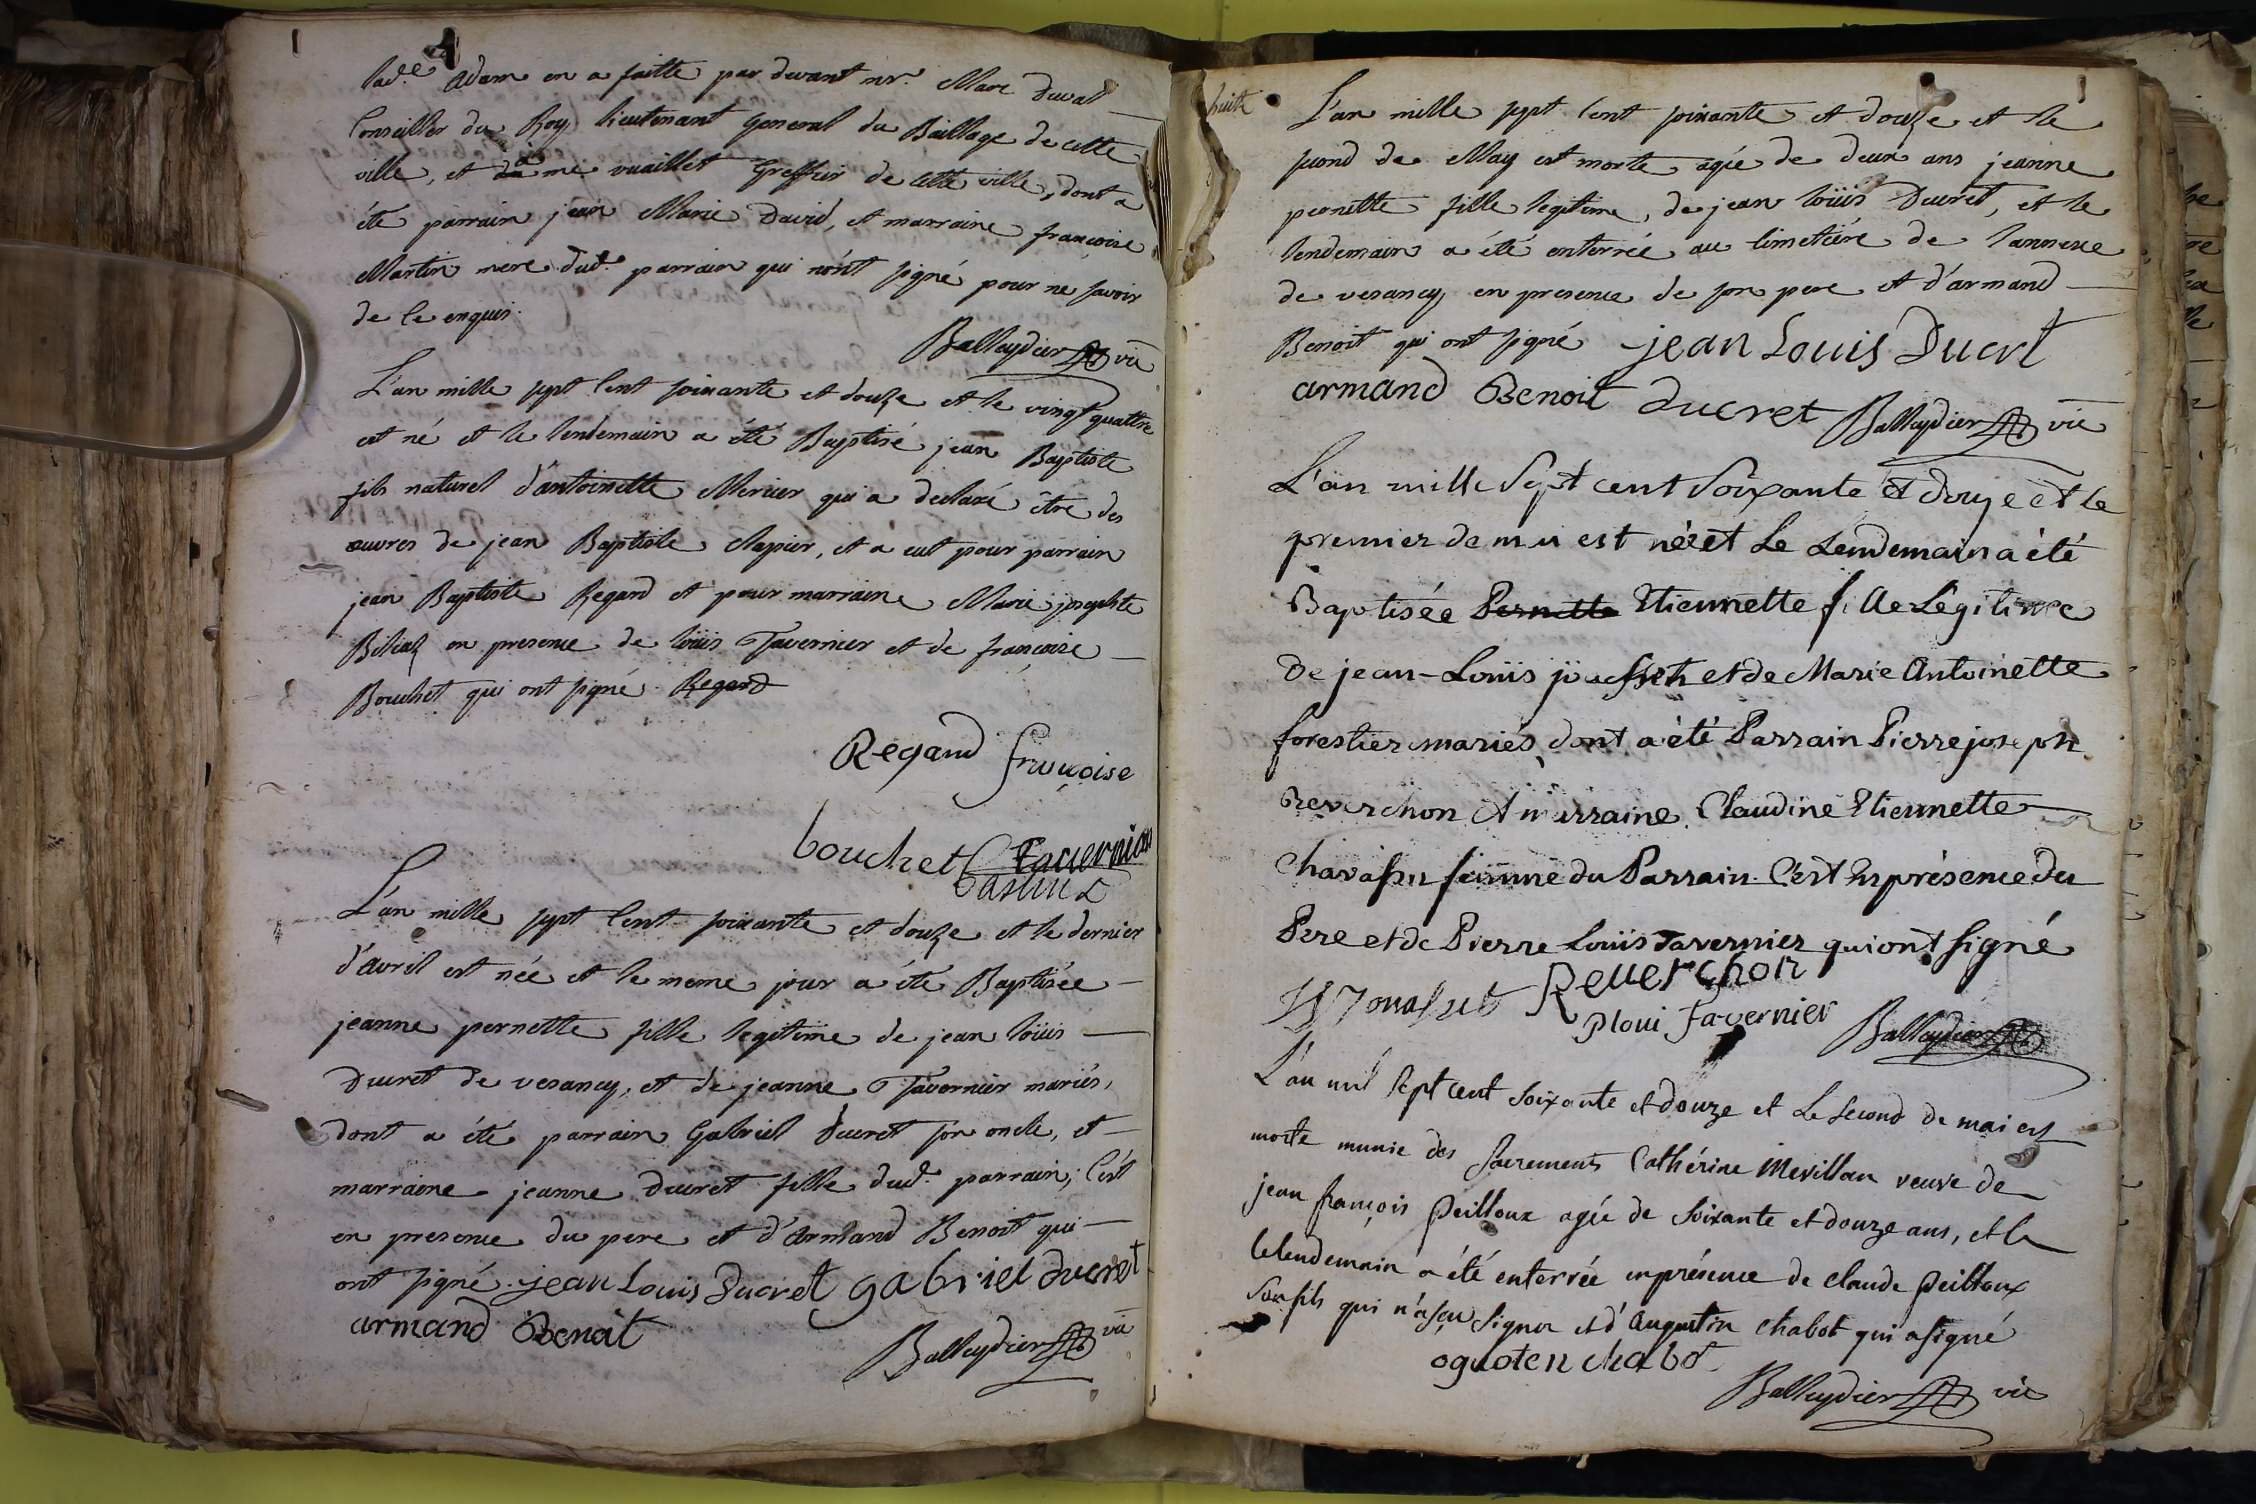 lad.e Adam en a faitte par devant mr. Marc duval
Conseiller du Roy lieutenant General du Baillage de cette
ville, et à me vuaillet Greffier de cette ville, dont a
été parrain jean Marie David, et marraine françoise
Martin mere dud. parrain qui n'ont signé pour ne savoir
de ce enquis.
Balleydier vic
L'an mille sept Cent soixante et douze et le vingt quattre
est né et le lendemain a été Baptisé jean Baptiste
fils naturel d'antoinette Mercier qui a declaré être des
œuvres de jean Baptiste Clapier, et a eut pour parrain
jean Baptiste Regard et pour marraine Marie josephte
en presence de loüis Tavernier et de françoise
Bouchet qui ont signé Regard
Regand françoise
bouchet Tauernier
L'an mille sept Cent soixante et douze et le dernier
d'avril est née et le meme jour a été Baptisée
jeanne pernette fille legitime de jean loüis
Ducret de vesancy, et de jeanne Tavernier mariés,
dont a été parrain Gabriel Ducret son oncle, et
marraine jeanne Ducret fille dud. parrain, C'est
en presence du pere et d'Armand Benoit qui
ont signé. jean Louis Ducret gabriel ducret
armand Benoit
Balleydier vic
huitt
L'an mille sept Cent soixante et douze et le
second de May est morte agée de deux ans jeanne
pernette fille legitime, de jean loüis Ducret, et le
lendemain a été enterrée au Cimetiére de l'annexe
de vesancy en presence de son pere et d'armand
Benoit qui ont signé jean Louis Ducrt
armand Benoit ducret Balleydier vic
L'an mille Sept cent Soixante et douze et le
premier de mai est née et Le Lendemain a été
Baptisée Pernette Etiennette fille Légitime
de jean-Loüis et de Marie Antoinette
forestier mariés, dont a été Parrain Pierre joseph
Reverchon et marraine Claudine Etiennette
Chavassu femme du Parrain. C'est en présence du
Pere et de Pierre Loüis Tavernier qui ont signé
Reuerchon
P loui Tavernier Balleydier
L'an mil sept cent soixante et douze et Le second de mai est
morte munie des Sacrements Cathérine Mevillan veuve de
jean françois Peilloux agée de soixante et douze ans, et le
lelendemain a été enterrée en présence de claude Peilloux
son fils qui n'a sçu signer et d'Augustin Chabot qui a signé
oguoten chabot
Balleydier vic